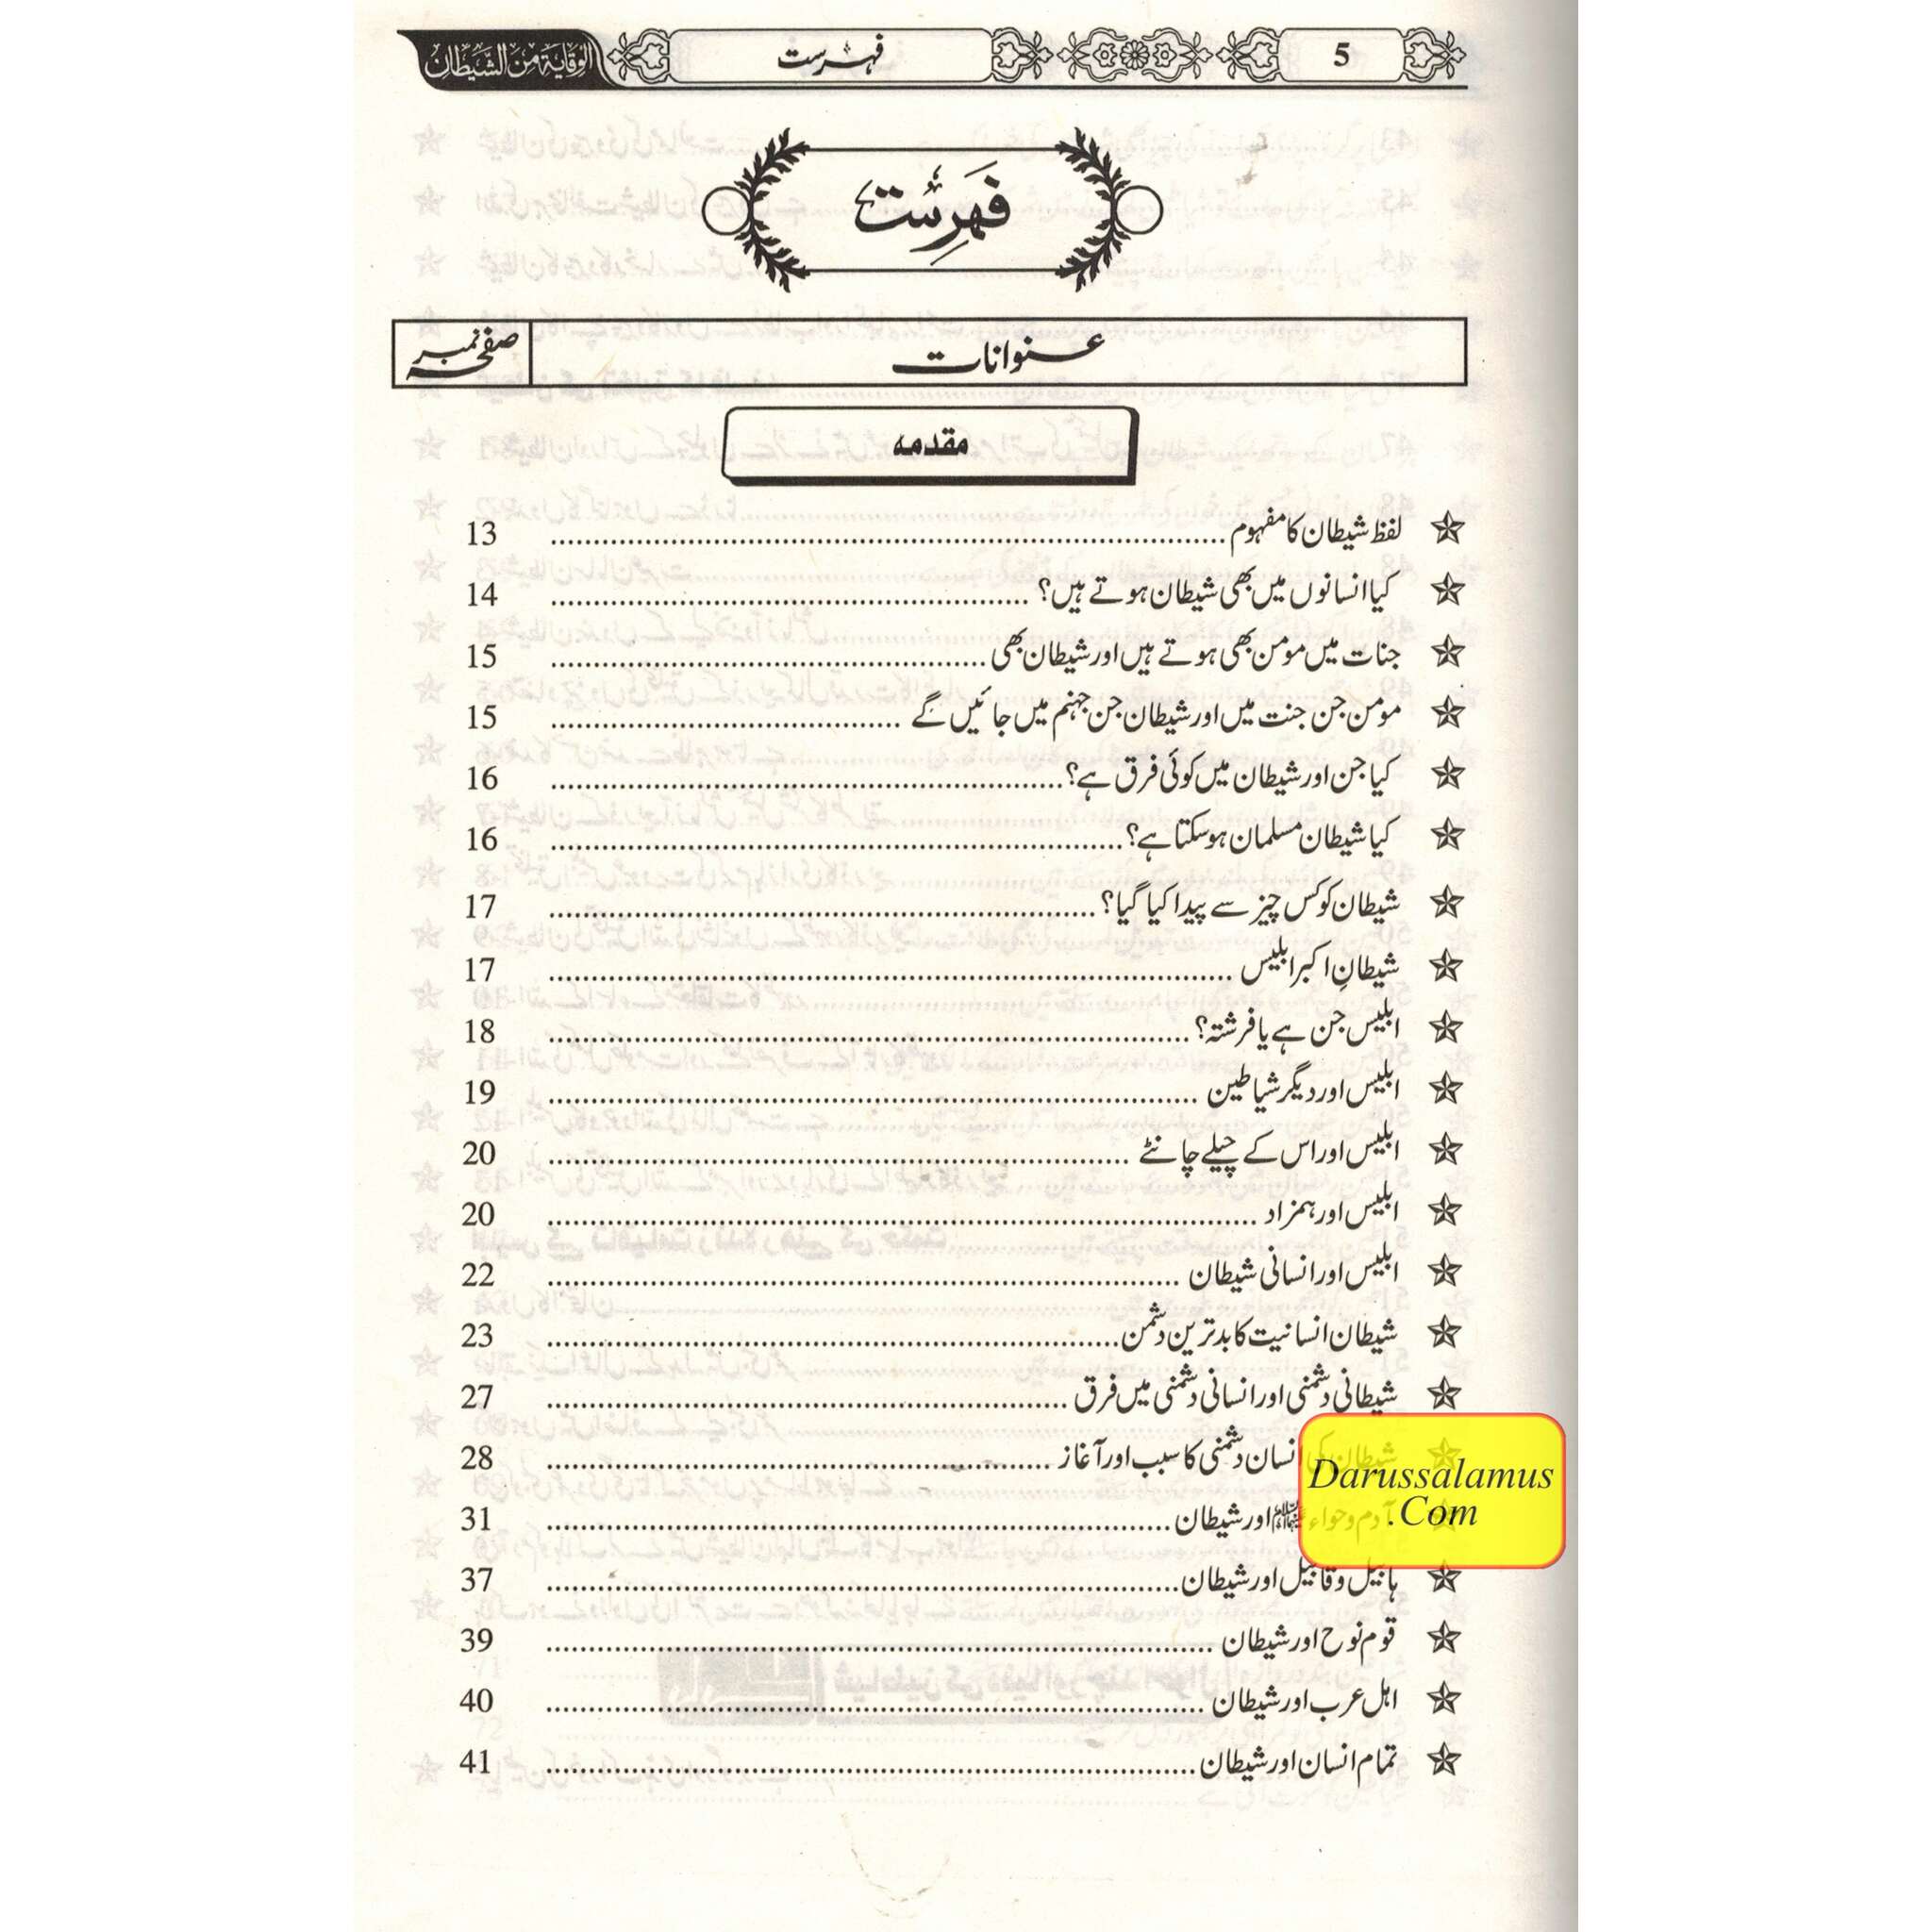 5 فہرست الوقایة من الشیطان
فہرست
عنوانات صفحہ نمبر
مقدمہ
لفظ شیطان کا مفہوم 13
کیا انسانوں میں بھی شیطان ہوتے ہیں؟ 14
جنات میں مومن بھی ہوتے ہیں اور شیطان بھی 15
مومن جن جنت میں اور شیطان جن جہنم میں جائیں گے 15
کیا جن اور شیطان میں کوئی فرق ہے؟ 16
کیا شیطان مسلمان ہو سکتا ہے؟ 16
شیطان کو کس چیز سے پیدا کیا گیا؟ 17
شیطانِ اکبر ابلیس 17
ابلیس جن ہے یا فرشتہ؟ 18
ابلیس اور دیگر شیاطین 19
ابلیس اور اس کے چیلے چانٹے 20
ابلیس اور ہمزاد 20
ابلیس اور انسانی شیطان 22
شیطان انسانیت کا بدترین دشمن 23
شیطانی دشمنی اور انسانی دشمنی میں فرق 27
شیطان کی انسان دشمنی کا سبب اور آغاز 28
آدم وحواء علیہما السلام اور شیطان 31
ہابیل وقابیل اور شیطان 37
قوم نوح اور شیطان 39
اہل عرب اور شیطان 40
تمام انسان اور شیطان 41
Darussalamus
.Com